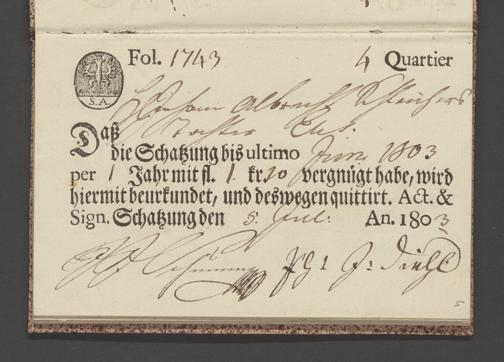 Fol. 1743 4 Quartier
S.A.
Albrecht Schleichers
Daß Tochter
die Schatzung bis ultimo Juni 1803
per 1 Jahr mit fl. 1 kr. 20 vergnügt habe, wird
hiermit beurkundet, und deswegen quittirt. Act. &
Sign. Schatzung den 5. Jul: An. 1803
J: Diehl
5